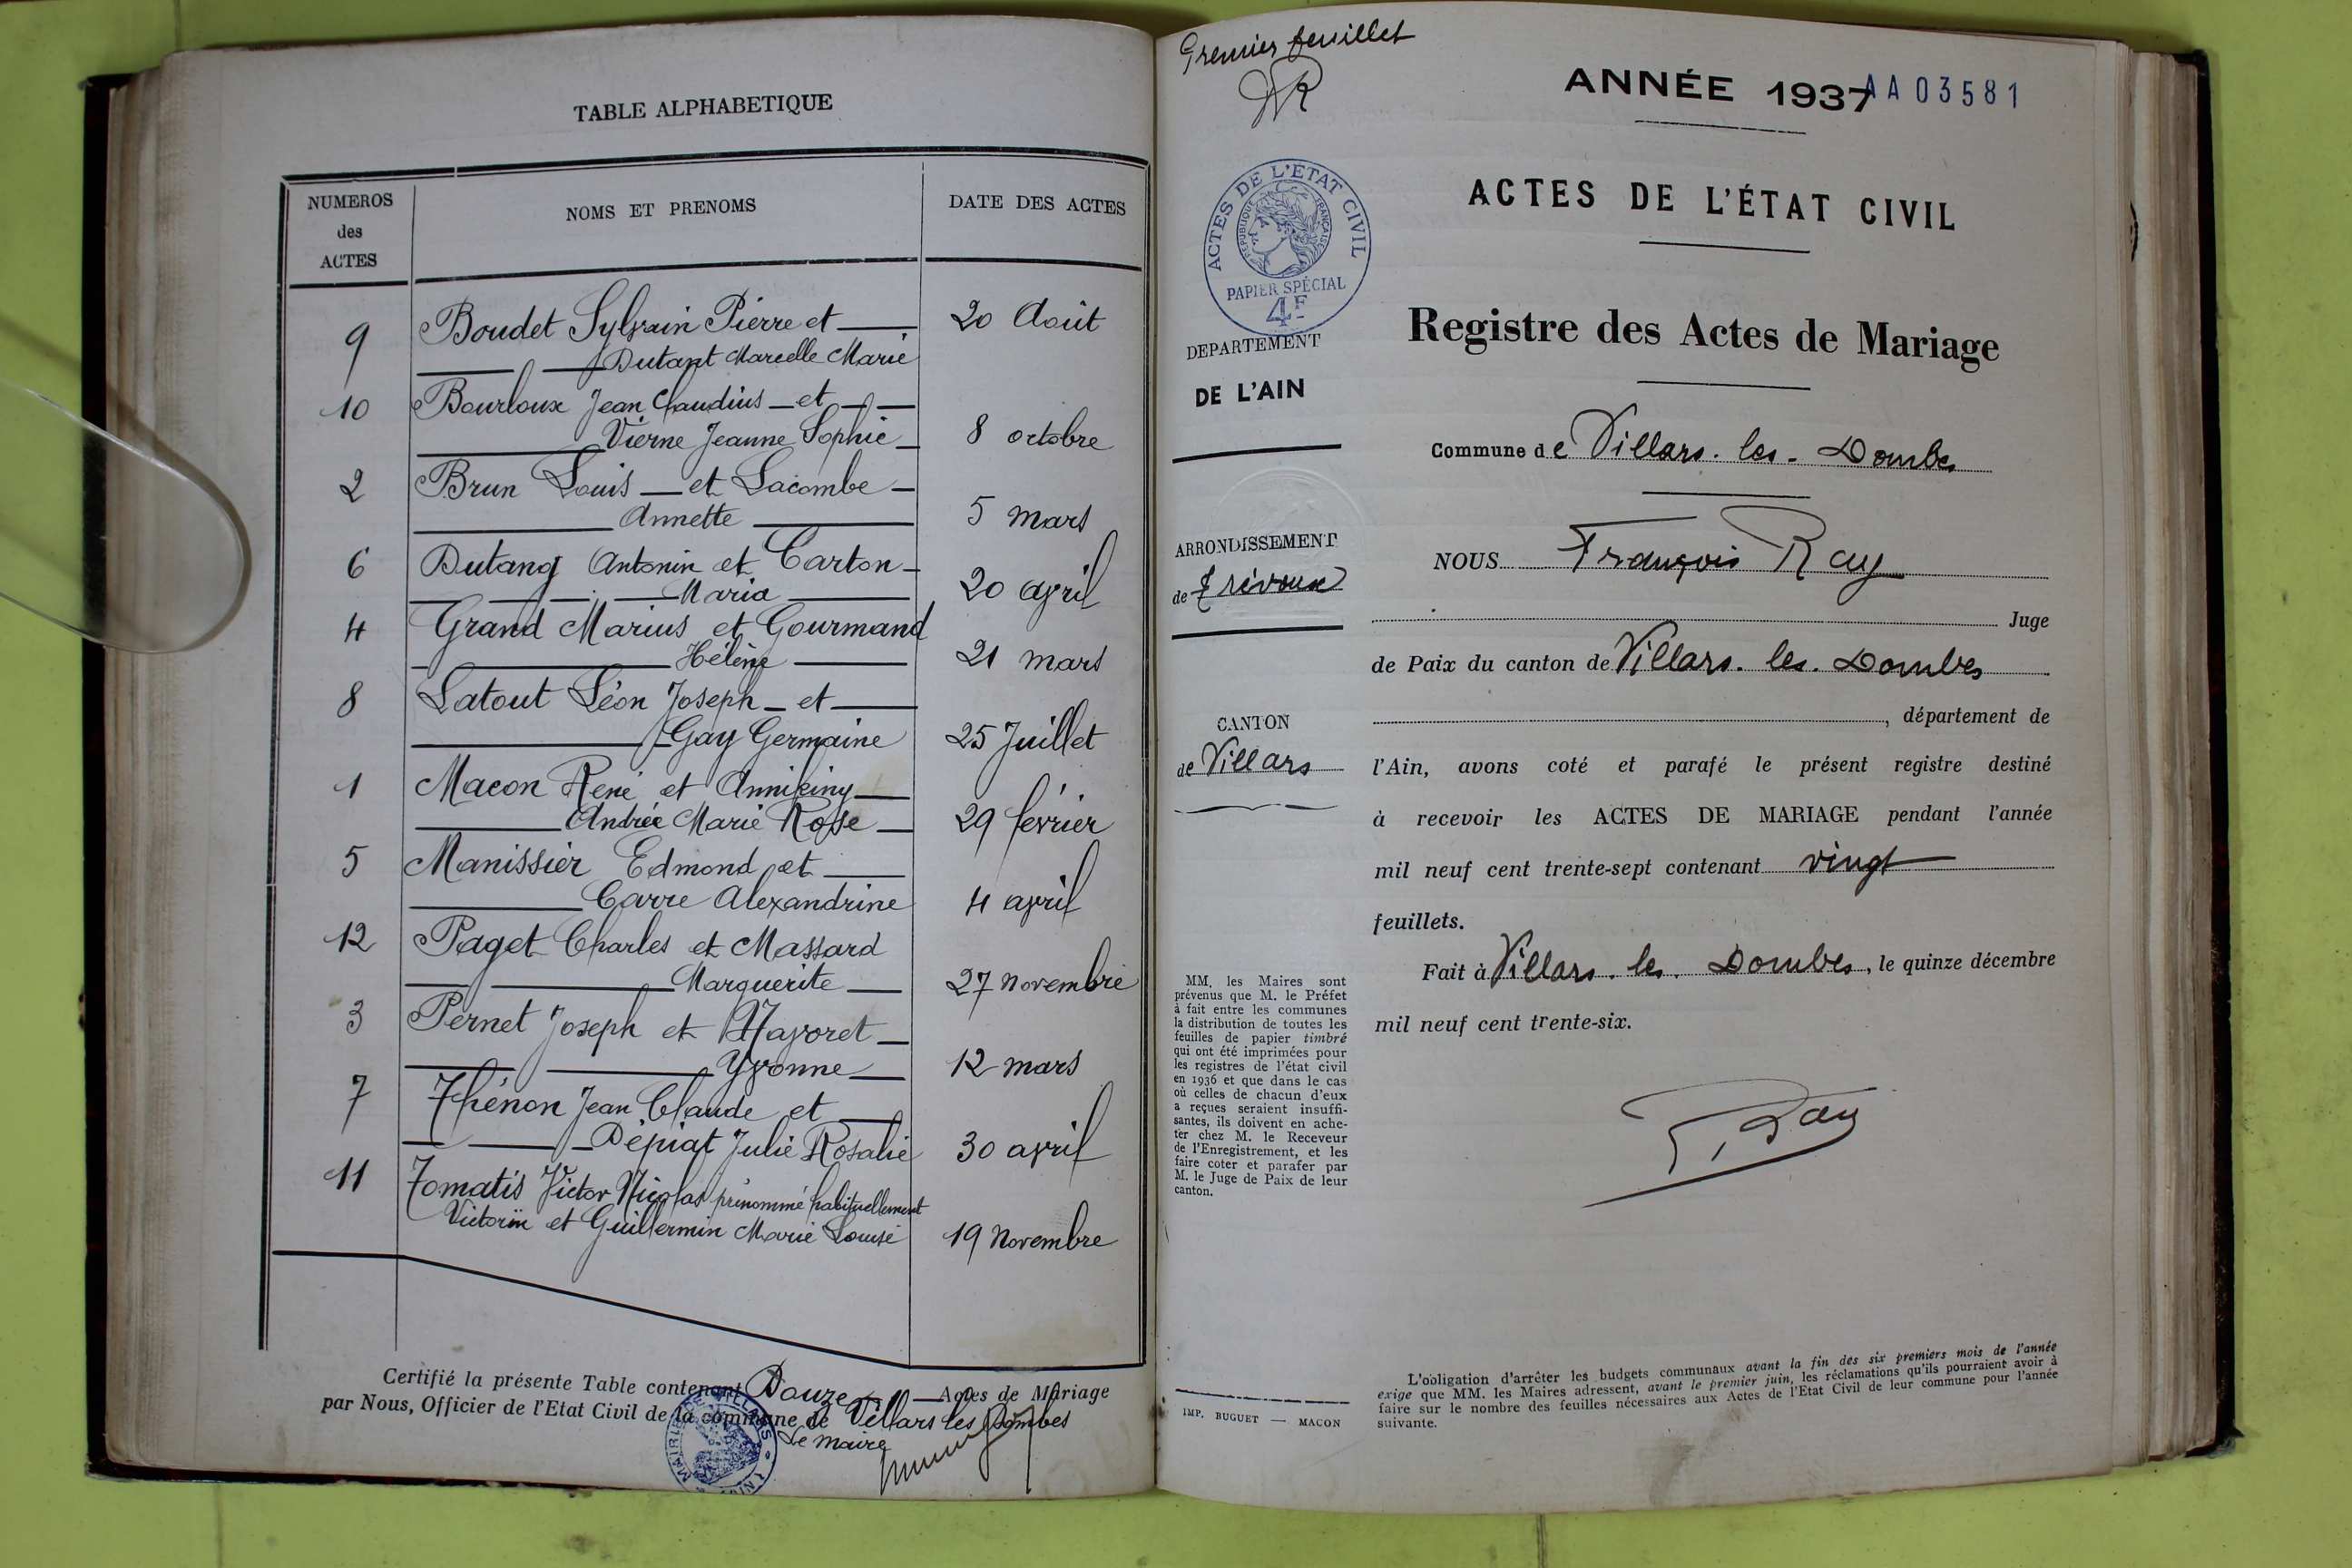 TABLE ALPHABETIQUE
NUMEROS
des
ACTES
NOMS ET PRENOMS
DATE DES ACTES
9 Boudet Sylvain Pierre et 20 Août
Dutant Marcelle Marie
10 Bourloux Jean Claudius et
Vierne Jeanne Sophie 8 octobre
2 Brun Louis et Lacombe
Annette 5 mars
6 Dutang Antonin et Carton
Maria 20 avril
4 Grand Marius et Gourmand
Hélène 21 mars
8 Latout Léon Joseph et
Gay Germaine 25 Juillet
1 Macon René et
Andrée Marie Rose 29 février
5 Manissier Edmond et
Carre Alexandrine 4 avril
12 Paget Charles et Massard
Marguerite 27 Novembre
3 Pernet Joseph et Mayoret
Yvonne 12 mars
7 Thénon Jean Claude et
Dépiat Julie Rosalie 30 avril
11 Tomatis Victor Nicolas prénommé habituellement
Victorin et Guillermin Marie Louise 19 Novembre
Certifié la présente Table contenant Douze Actes de Mariage
par Nous, Officier de l'Etat Civil de la commune de Villars les Dombes
Le maire
MAIRIE DE VILLARS
Premier feuillet
ANNÉE 1937 AA03581
ACTES DE L'ETAT CIVIL
REPUBLIQUE FRANÇAISE
PAPIER SPÉCIAL
4F
ACTES DE L'ÉTAT CIVIL
Registre des Actes de Mariage
DEPARTEMENT
DE L'AIN
Commune de Villars-les-Dombes
ARRONDISSEMENT
de Trévoux
CANTON
de Villars
NOUS François Ray
Juge
de Paix du canton de Villars-les-Dombes
, département de
l'Ain, avons coté et parafé le présent registre destiné
à recevoir les ACTES DE MARIAGE pendant l'année
mil neuf cent trente-sept contenant vingt
feuillets.
Fait à Villars-les-Dombes, le quinze décembre
mil neuf cent trente-six.
Ray
MM. les Maires sont
prévenus que M. le Préfet
à fait entre les communes
la distribution de toutes les
feuilles de papier timbré
qui ont été imprimées pour
les registres de l'état civil
en 1936 et que dans le cas
où celles de chacun d'eux
a reçues seraient insuffi-
santes, ils doivent en ache-
ter chez M. le Receveur
de l'Enregistrement, et les
faire coter et parafer par
M. le Juge de Paix de leur
canton.
IMP. BUGUET — MACON
L'obligation d'arrêter les budgets communaux avant la fin des six premiers mois de l'année
exige que MM. les Maires adressent, avant le premier juin, les réclamations qu'ils pourraient avoir à
faire sur le nombre des feuilles nécessaires aux Actes de l'Etat Civil de leur commune pour l'année
suivante.